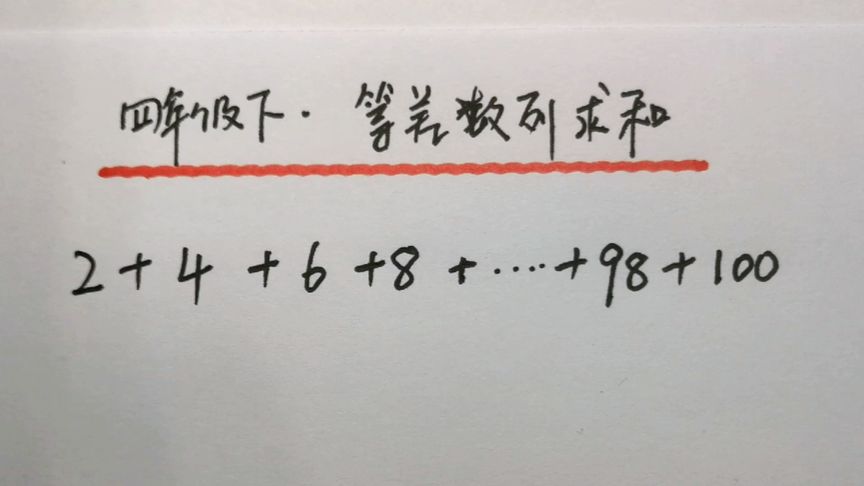 四年级下·等差数列求和
2+4+6+8+····+98+100